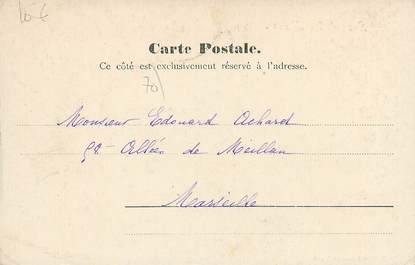 10 €
Carte Postale.
Ce côté est exclusivement réservé à l'adresse.
70
Monsieur Édouard Achard
52 Allées de Meillan
Marseille